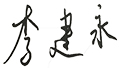 李建永